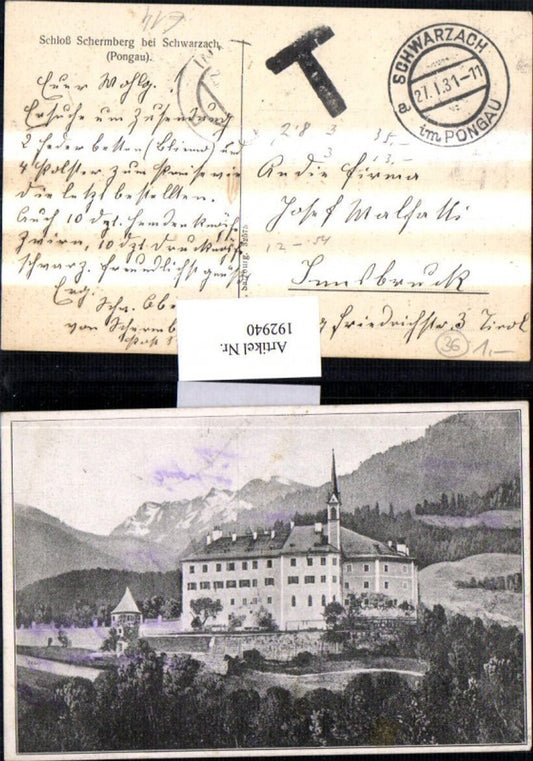 Schloß Schermberg bei Schwarzach
(Pongau).
Euer Wohlg.
Ersuche um Zusendung
2 Federbetten (Blümo) und
4 Polster zum Preise wie
die letzt bestellten.
Auch 10 dzt.
Zwirn, 10 dzt. Druckknöpfe
schwarz. Freundlichst
von Schermberg
T
SCHWARZACH
a 27.I.31-11
im PONGAU
An die Firma
Josef Malfatti
Innsbruck
Friedrichstr. 3 Tirol
2'8 3
35,-
3 13,-
12-54
26
1.-
614
Artikel Nr.
192940